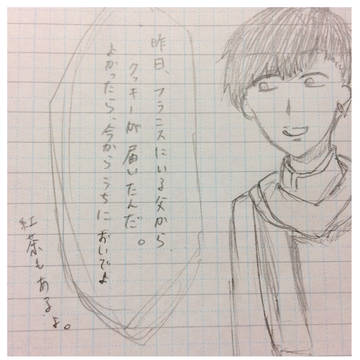 昨日、フランスにいる父から
クッキーが届いたんだ。
よかったら、今からうちにおいでよ
紅茶もあるよ。